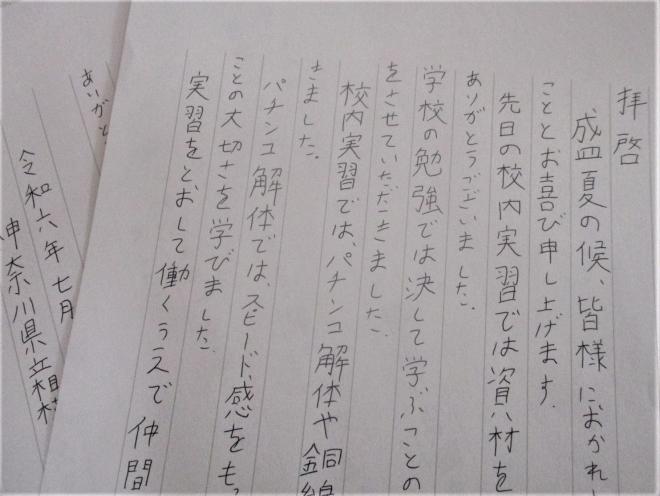 拝啓
盛夏の候、皆様におかれ
こととお喜び申し上げます.
先日の校内実習では資材を
ありがとうございました.
学校の勉強では決して学ぶことの
をさせていただきました.
校内実習では、パチンコ解体や銅線
きました.
パチンコ解体では、スピード感をもっ
ことの大切さを学びました.
実習をとおして働くうえで仲間
ありがと
令和六年七月
神奈川県立相模